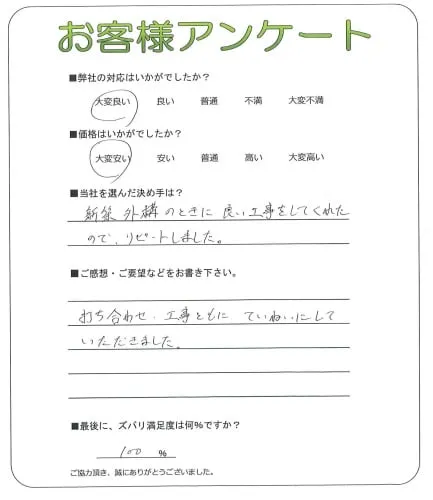 お客様アンケート
■弊社の対応はいかがでしたか？
大変良い 良い 普通 不満 大変不満
■価格はいかがでしたか？
大変安い 安い 普通 高い 大変高い
■当社を選んだ決め手は？
新築 外構のときに 良い工事をしてくれた
ので、リピートしました。
■ご感想・ご要望などをお書き下さい。
打ち合わせ、工事ともに ていねいにして
いただきました。
■最後に、ズバリ満足度は何％ですか？
100 ％
ご協力頂き、誠にありがとうございました。